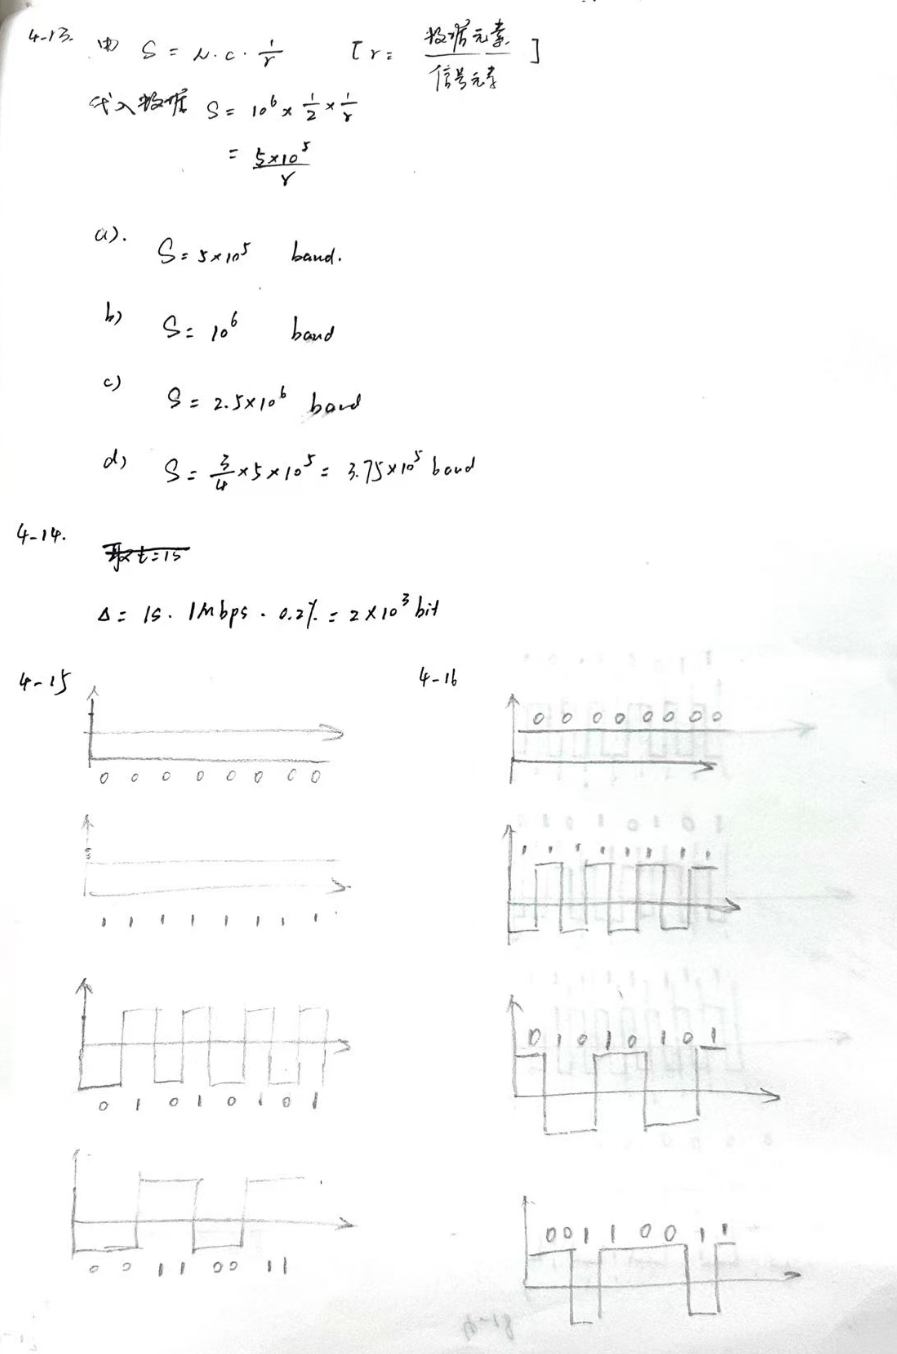 4-13. 由 S = N·c·1/r [r = 数据元素/信号元素]
代入数据 S = 10⁶ × 1/2 × 1/r
= 5×10⁵/r
a). S = 5×10⁵ baud.
b) S = 10⁶ baud
c) S = 2.5×10⁶ baud
d) S = 3/4 × 5 × 10⁵ = 3.75×10⁵ baud
4-14.
取t=1s
Δ = 1s · 1Mbps · 0.2% = 2×10³ bit
4-15
0 0 0 0 0 0 0 0
1 1 1 1 1 1 1 1
0 1 0 1 0 1 0 1
0 0 1 1 0 0 1 1
4-16
0 0 0 0 0 0 0 0
1 1 1 1 1 1 1 1
0 1 0 1 0 1 0 1
0 0 1 1 0 0 1 1